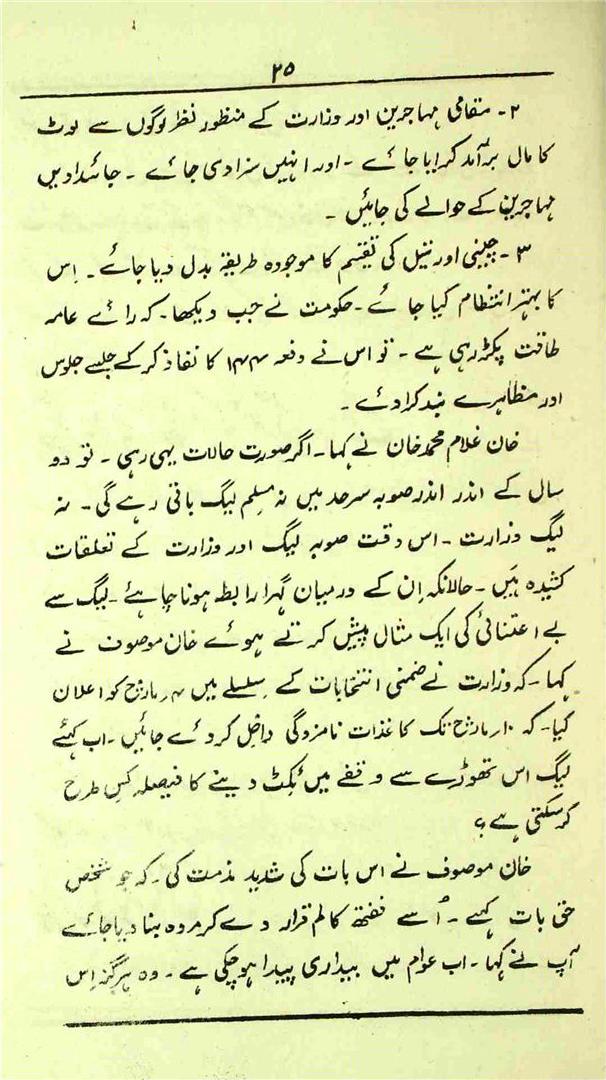 ۲۵
۲۔ مقامی مہاجرین اور وزارت کے منظور نظر لوگوں سے لوٹ
کا مال برآمد کرایا جائے ۔ اور انہیں سزا دی جائے ۔ جائدادیں
مہاجرین کے حوالے کی جائیں ۔
۳ ۔ چینی اور تیل کی تقسیم کا موجودہ طریقہ بدل دیا جائے ۔ اِس
کا بہتر انتظام کیا جائے ۔ حکومت نے جب دیکھا ۔ کہ رائے عامہ
طاقت پکڑ رہی ہے ۔ تو اس نے دفعہ ۱۴۴ کا نفاذ کر کے جلسے جلوس
اور مظاہرے بند کرا دئے ۔
خان غلام محمد خان نے کہا ۔ اگر صورت حالات یہی رہی ۔ تو دو
سال کے اندر اندر صوبہ سرحد میں نہ مسلم لیگ باقی رہے گی ۔ نہ
لیگ وزارت ۔ اس وقت صوبہ لیگ اور وزارت کے تعلقات
کشیدہ ہیں ۔ حالانکہ اِن کے درمیان گہرا رابطہ ہونا چاہئے ۔ لیگ سے
بے اعتنائی کی ایک مثال پیش کرتے ہوئے خان موصوف نے
کہا ۔ کہ وزارت نے ضمنی انتخابات کے سلسلے میں ۴ مارچ کو اعلان
کیا ۔ کہ ۱۰ مارچ تک کاغذات نامزدگی داخل کر دئے جائیں ۔ اب کہئے
لیگ اس تھوڑے سے وقفے میں ٹکٹ دینے کا فیصلہ کس طرح
کر سکتی ہے ؟
خان موصوف نے اس بات کی شدید مذمت کی ۔ کہ جو شخص
حق بات کہے ۔ اُسے ففتھ کالم قرار دے کر مردہ بنا دیا جائے
آپ نے کہا ۔ اب عوام میں بیداری پیدا ہو چکی ہے ۔ وہ ہرگز اِس